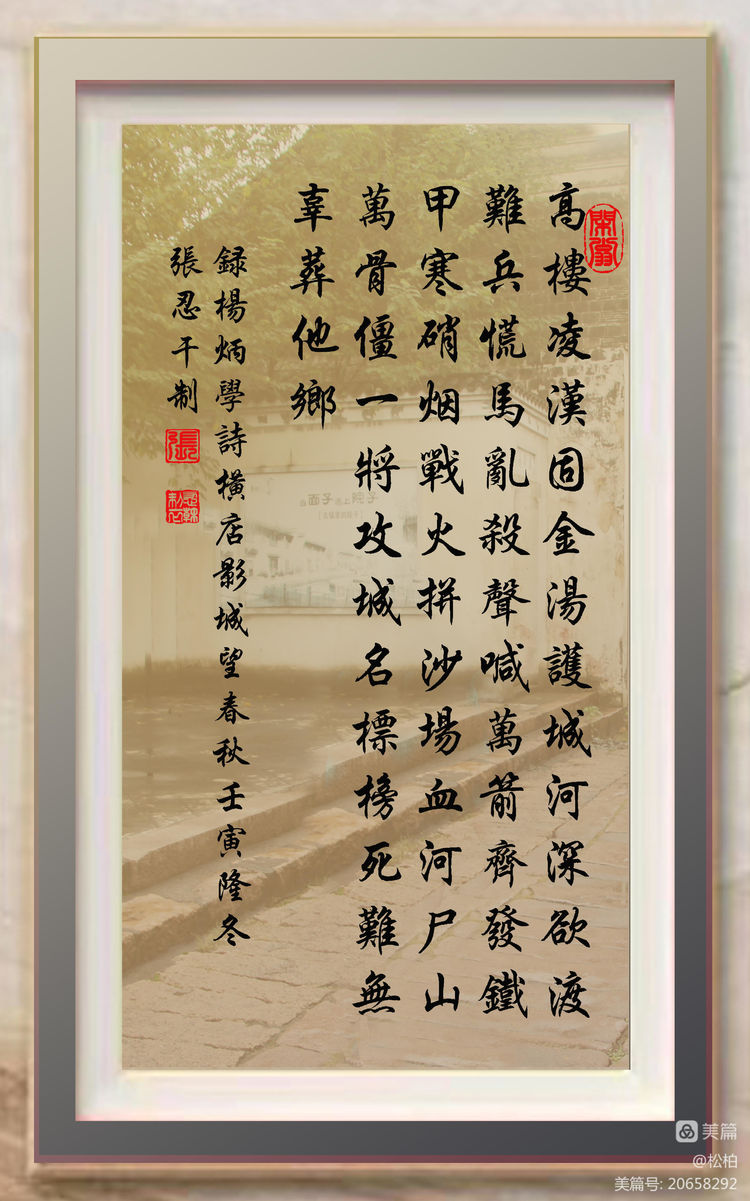 高樓凌漢固金湯護城河深欲渡
難兵慌馬亂殺聲喊萬箭齊發鐵
甲寒硝烟戰火拼沙場血河尸山
萬骨僵一將攻城名標榜死難無
辜葬他鄉
録楊炳學詩橫店影城望春秋壬寅隆冬
張忍干制
張
面子 上院子
美篇
@松柏
美篇号: 20658292